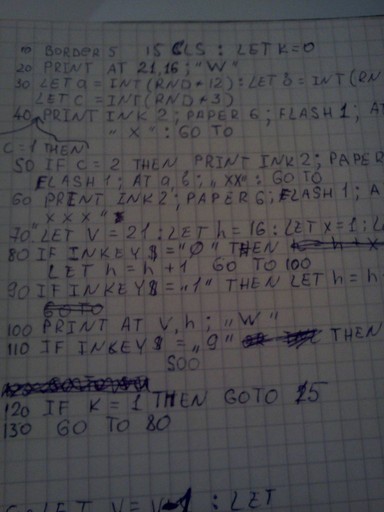 10 BORDER 5 15 CLS : LET K=0
20 PRINT AT 21,16; "W"
30 LET a = INT(RND*12) : LET b = INT(RN
LET C = INT(RND*3)
40 PRINT INK 2; PAPER 6; FLASH 1; AT
"X" : GO TO
C=1 THEN
50 IF C = 2 THEN PRINT INK2; PAPER
FLASH 1; AT a, b; "XX" : GO TO
60 PRINT INK2; PAPER 6; FLASH 1; A
XXX"
70 LET V = 21 : LET h = 16 : LET x = 1 : L
80 IF INKEY$ = "0" THEN
LET h = h + 1 GO TO 100
90 IF INKEY$ = "1" THEN LET h = h
GO TO
100 PRINT AT V, h; "W"
110 IF INKEY$ = "9" THEN
500
120 IF K = 1 THEN GOTO 15
130 GO TO 80
LET V = V-1 : LET